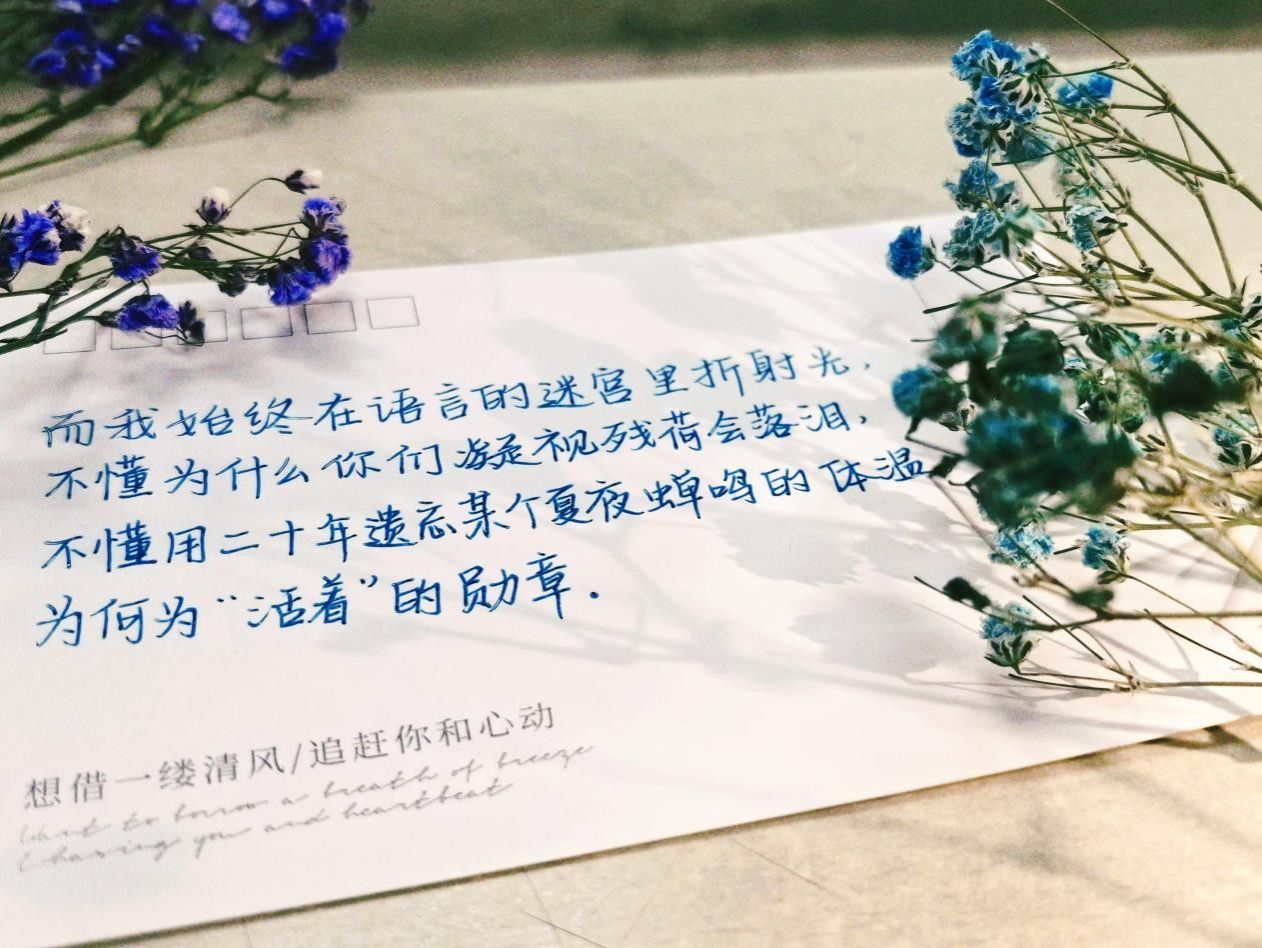 而我始终在语言的迷宫里折射时光，
不懂为什么你们凝视残荷会落泪，
不懂用二十年遗忘某个夏夜蝉鸣的体温
为何为“活着”的勋章.
想借一缕清风/追赶你和心动
Want to borrow a breath of breeze
Chasing you and heartbeat